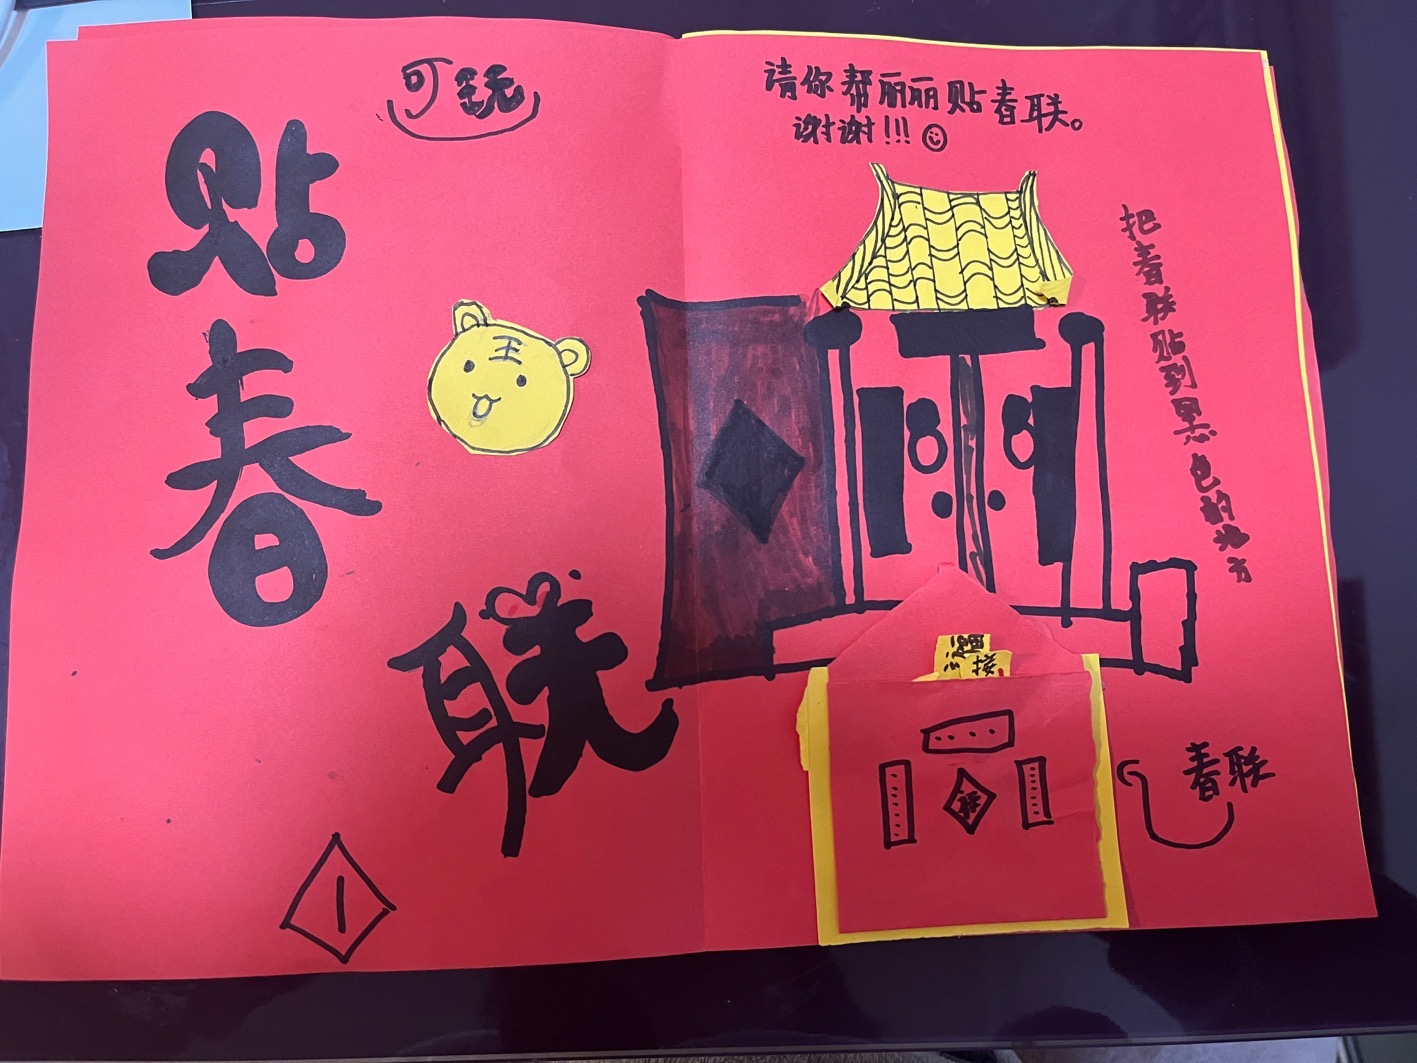 可玩
贴
春
联
王
1
请你帮丽丽贴春联。
谢谢!!!
把春联贴到黑色的地方
福
接
春联